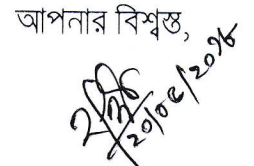 আপনার বিশ্বস্ত,
২০/০৫/২০১৮